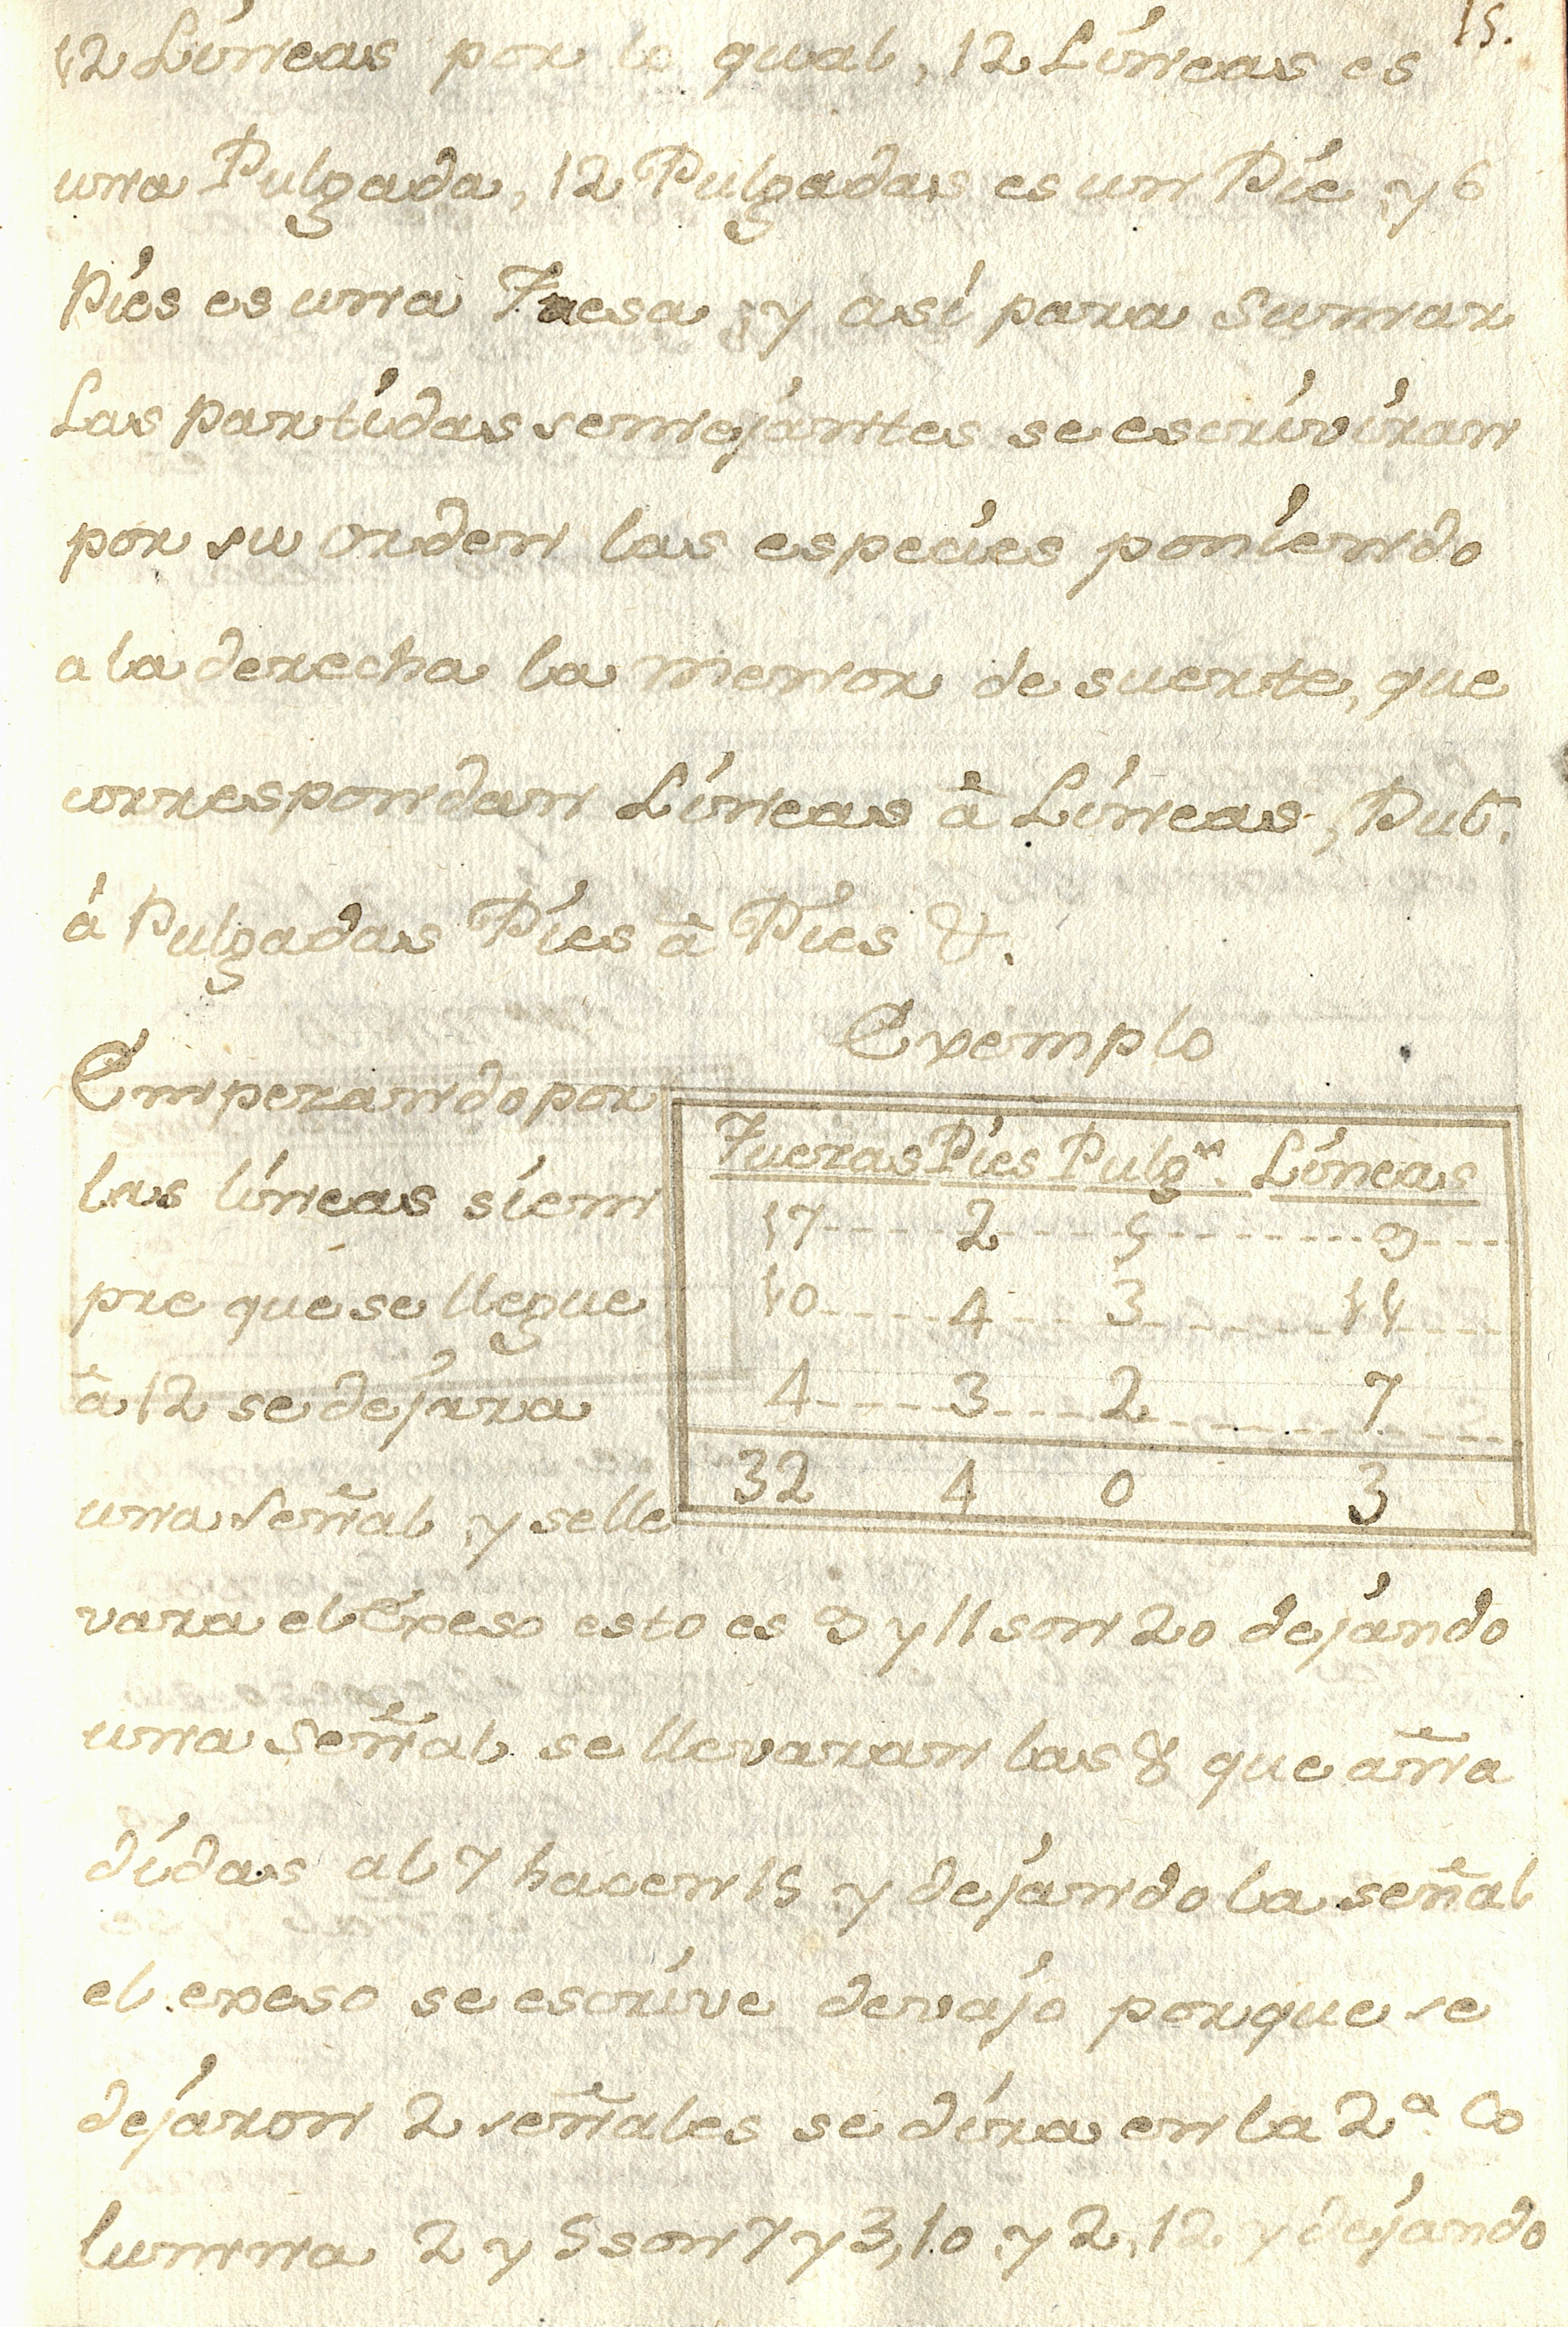 15.
12 Líneas por lo qual, 12 Líneas es
una Pulgada, 12 Pulgadas es un Píe, y 6
Píes es una Tuesa, y así para Sumar
Las partídas semejántes se escrívíran
por su orden las especíes poníendo
a la derecha la menor de suerte, que
correspondan Líneas à Líneas, Pul.
á Pulgadas Píes à Píes &.
Exemplo
Empezando por
las líneas síem
pre que se llegue
à 12 se dejara
una señal, y se lle
Tuezas Píes Pulg.as Líneas
17 2 5 9
10 4 3 11
4 3 2 7
32 4 0 3
vara el Exeso esto es 9 y 11 son 20 dejándo
una Señal se llevaran las 8 que aña
dídas al 7 hacen 15 y dejándo la señal
el exeso se escríve devájo porque se
dejáron 2 señales se díra en la 2ª. Co
lumna 2 y 5 son 7 y 3, 10 y 2, 12 y dejándo